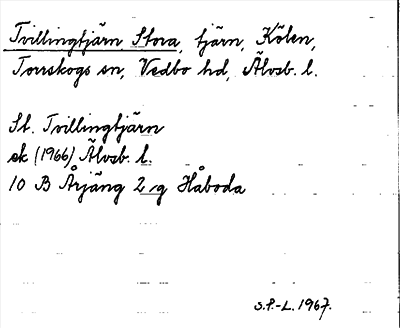 Tvillingtjärn Stora, tjärn, Kölen,
Torrskogs sn, Vedbo hd, Älvsb. l.
St. Tvillingtjärn
ek (1966) Älvsb. l.
10 B Årjäng 2 g Håboda
S.P.-L. 1967.